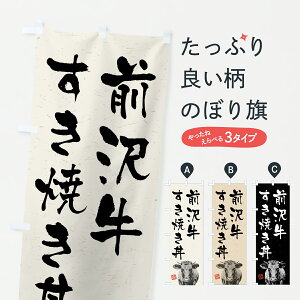 前沢牛
すき焼き丼
たっぷり
良い柄
のぼり旗
やったね
えらべる 3タイプ
A
前沢牛
すき焼き丼
B
前沢牛
すき焼き丼
C
前沢牛
すき焼き丼